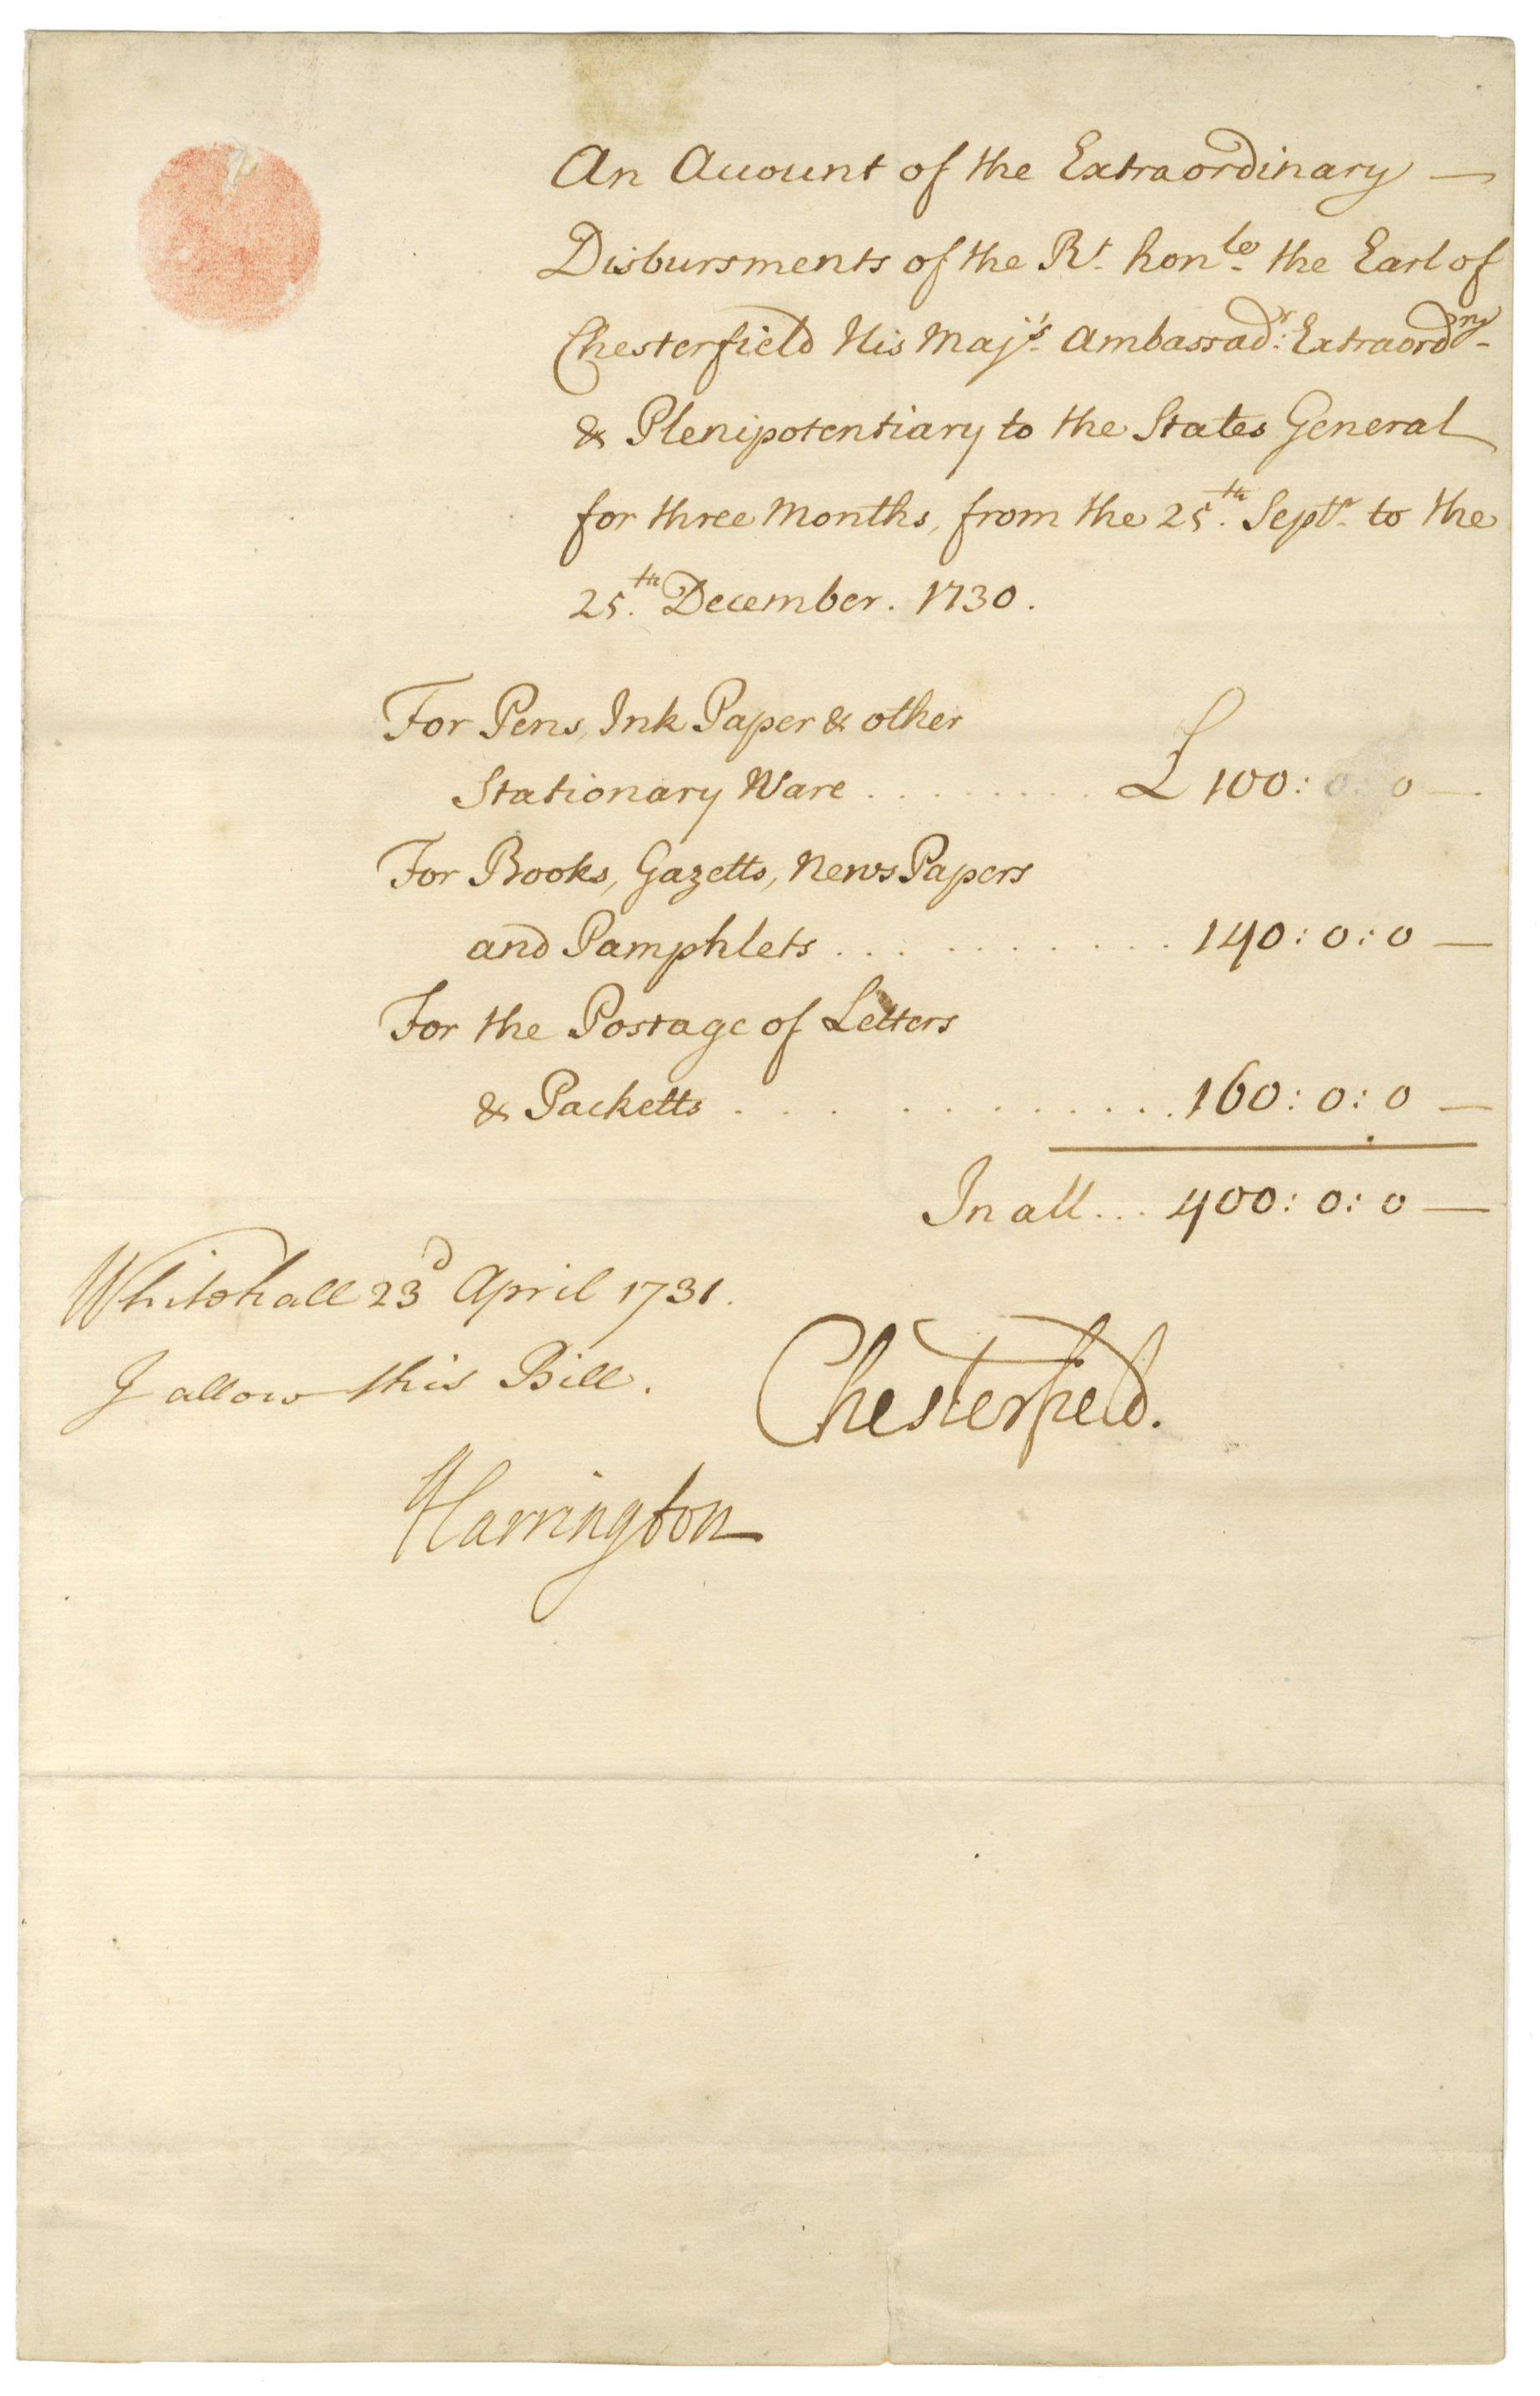 An Account of the Extraordinary —
Disbursments of the Rt. honble. the Earl of
Chesterfield His Maj's. Ambassadr: Extraordry.
& Plenipotentiary to the States General
for three Months, from the 25th. Septr. to the
25th. December. 1730.
For Pens, Ink Paper & other
Stationary Ware . . . . . . . . . £ 100: 0: 0 —
For Books, Gazetts, News Papers
and Pamphlets . . . . . . . . . . 140: 0: 0 —
For the Postage of Letters
& Packetts . . . . . . . . . . . . 160: 0: 0 —
In all... 400: 0: 0 —
Whitehall 23d April 1731.
I allow this Bill.
Chesterfield.
Harrington